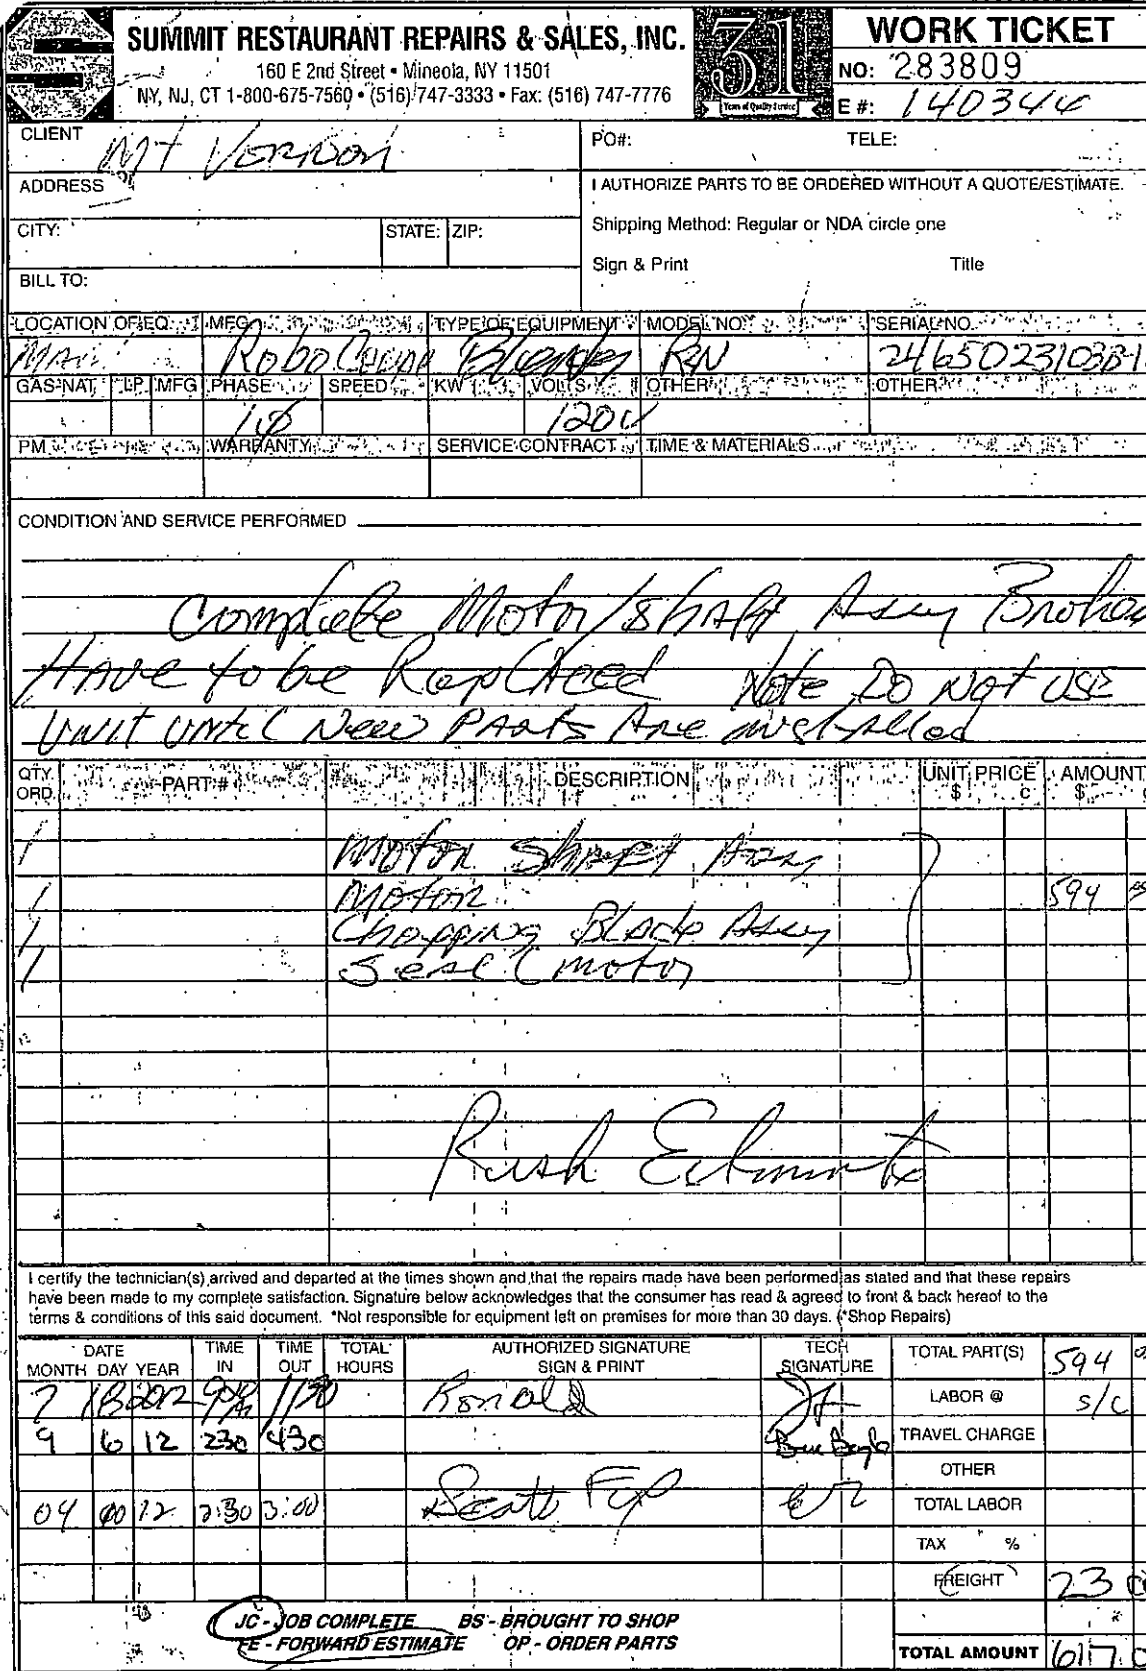 SUMMIT RESTAURANT REPAIRS & SALES, INC.
160 E 2nd Street • Mineola, NY 11501
NY, NJ, CT 1-800-675-7560 • (516) 747-3333 • Fax: (516) 747-7776
31
Years of Quality Service
WORK TICKET
NO: 283809
E #: 140344
CLIENT Mt Vernon
PO#: TELE:
ADDRESS
I AUTHORIZE PARTS TO BE ORDERED WITHOUT A QUOTE/ESTIMATE.
CITY: STATE: ZIP:
Shipping Method: Regular or NDA circle one
Sign & Print Title
BILL TO:
LOCATION OF EQ. MFG TYPE OF EQUIPMENT MODEL NO. SERIAL NO.
Robo Blender
GAS-NAT. LP MFG PHASE SPEED KW VOLTS OTHER OTHER
1Ø 120V
PM WARRANTY SERVICE CONTRACT TIME & MATERIALS
CONDITION AND SERVICE PERFORMED
Complete Motor/Shaft Assy Broken
Have to be Replaced Note Do Not USE
UNIT UNTIL New PARTS Are installed
QTY. ORD. PART # DESCRIPTION UNIT PRICE $ c AMOUNT $
1 Motor Shaft Assy
1 Motor 594
1 Chopping Blade Assy
1 Seal (motor
Rush
I certify the technician(s) arrived and departed at the times shown and that the repairs made have been performed as stated and that these repairs
have been made to my complete satisfaction. Signature below acknowledges that the consumer has read & agreed to front & back hereof to the
terms & conditions of this said document. *Not responsible for equipment left on premises for more than 30 days. (*Shop Repairs)
DATE MONTH DAY YEAR TIME IN TIME OUT TOTAL HOURS AUTHORIZED SIGNATURE SIGN & PRINT TECH SIGNATURE TOTAL PART(S) 594
7 18 2012 1130 Ronald LABOR @ s/c
9 6 12 230 430 TRAVEL CHARGE
OTHER
04 12 2:30 3:00 TOTAL LABOR
TAX %
FREIGHT 23
JC - JOB COMPLETE BS - BROUGHT TO SHOP
FE - FORWARD ESTIMATE OP - ORDER PARTS
TOTAL AMOUNT 617